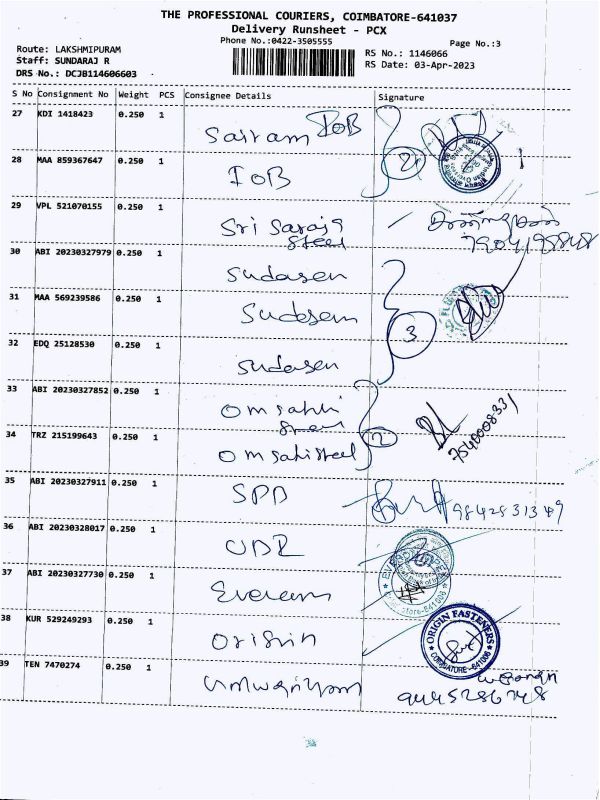 THE PROFESSIONAL COURIERS, COIMBATORE-641037
Delivery Runsheet - PCX
Phone No.:0422-3505555
Page No.:3
Route: LAKSHMIPURAM
Staff: SUNDARAJ R
DRS No.: DCJB114606603
RS No.: 1146066
RS Date: 03-Apr-2023
S No Consignment No Weight PCS Consignee Details Signature
27 KDI 1418423 0.250 1 Sairam IOB
28 MAA 859367647 0.250 1 IOB 2
29 VPL 521070155 0.250 1 Sri Saraja Steel 7904195848
30 ABI 20230327979 0.250 1 Sudasen
31 MAA 569239586 0.250 1 Sudesem 3
32 EDQ 25128530 0.250 1 Sudasen
33 ABI 20230327852 0.250 1 Om sakti Steel
34 TRZ 215199643 0.250 1 Om sakti steel 2 7540008331
35 ABI 20230327911 0.250 1 SPD 9842831349
36 ABI 20230328017 0.250 1
37 ABI 20230327730 0.250 1
38 KUR 529249293 0.250 1 Origin ORIGIN FASTENERS COIMBATORE - 641006
39 TEN 7470274 0.250 1 9445286748